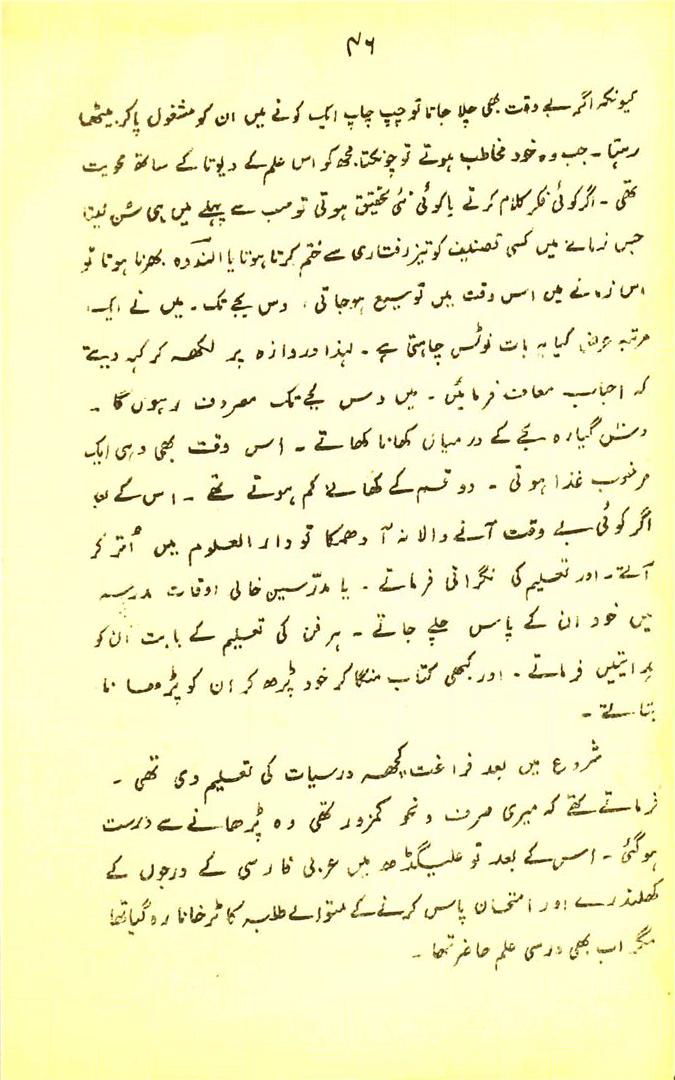 ۴۶
کیونکہ اگر بے وقت بھی چلا جاتا تو چپ چاپ ایک کونے میں ان کو مشغول پا کر بیٹھا
رہتا ۔ جب وہ خود مخاطب ہوتے تو چونکتا۔ مجھ کو اس علم کے دیوتا کے ساتھ محویت
تھی ۔ اگر کوئی فکر کلام کرتے یا کوئی نئی تحقیق ہوتی تو سب سے پہلے میں ہی سُن لیتا
جس زمانے میں کسی تصنیف کو تیز رفتاری سے ختم کرنا ہوتا یا الندوہ بھرنا ہوتا تو
اس زمانے میں اس وقت میں توسیع ہو جاتی ، دس بجے تک ۔ میں نے ایک
مرتبہ عرض کیا یہ بات نوٹس چاہتی ہے ۔ لہذا دروازہ پر لکھ کر کہہ دیتے
کہ احباب معاف فرمائیں ۔ میں دس بجے تک مصروف رہوں گا ۔
دس گیارہ بجے کے درمیان کھانا کھاتے ۔ اس وقت بھی وہی ایک
مرغوب غذا ہوتی ۔ دو قسم کے کھانے کم ہوتے تھے ۔ اس کے بعد
اگر کوئی بے وقت آنے والا نہ آ دھمکا تو دار العلوم میں اُتر کر
آتے ۔ اور تعلیم کی نگرانی فرماتے ۔ یا مدرّسین خالی اوقات مدرسہ
میں خود ان کے پاس چلے جاتے ۔ ہر فن کی تعلیم کے بابت اُن کو
ہدایتیں فرماتے ۔ اور کبھی کتاب منگا کر خود پڑھ کر ان کو پڑھانا
بتاتے ۔
شروع میں بعد فراغت کچھ درسیات کی تعلیم دی تھی ۔
فرماتے تھے کہ میری صرف و نحو کمزور تھی وہ پڑھانے سے درست
ہوگئی ۔ اس کے بعد تو علیگڈھ میں عربی فارسی کے درجوں کے
کھلنڈرے اور امتحان پاس کرنے کے متوالے طلبہ کا ٹرخانا رہ گیا تھا
مگر اب بھی درسی علم حاضر تھا ۔